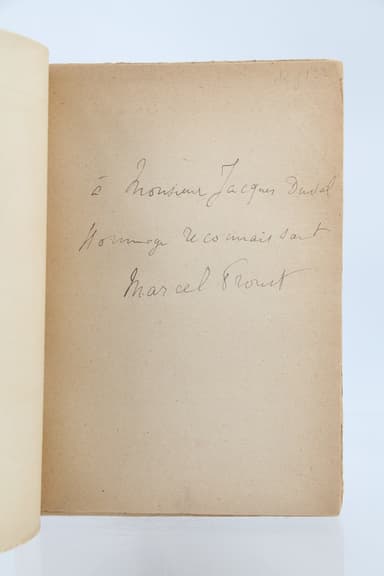 à Monsieur Jacques Duval
Hommage reconnaissant
Marcel Proust